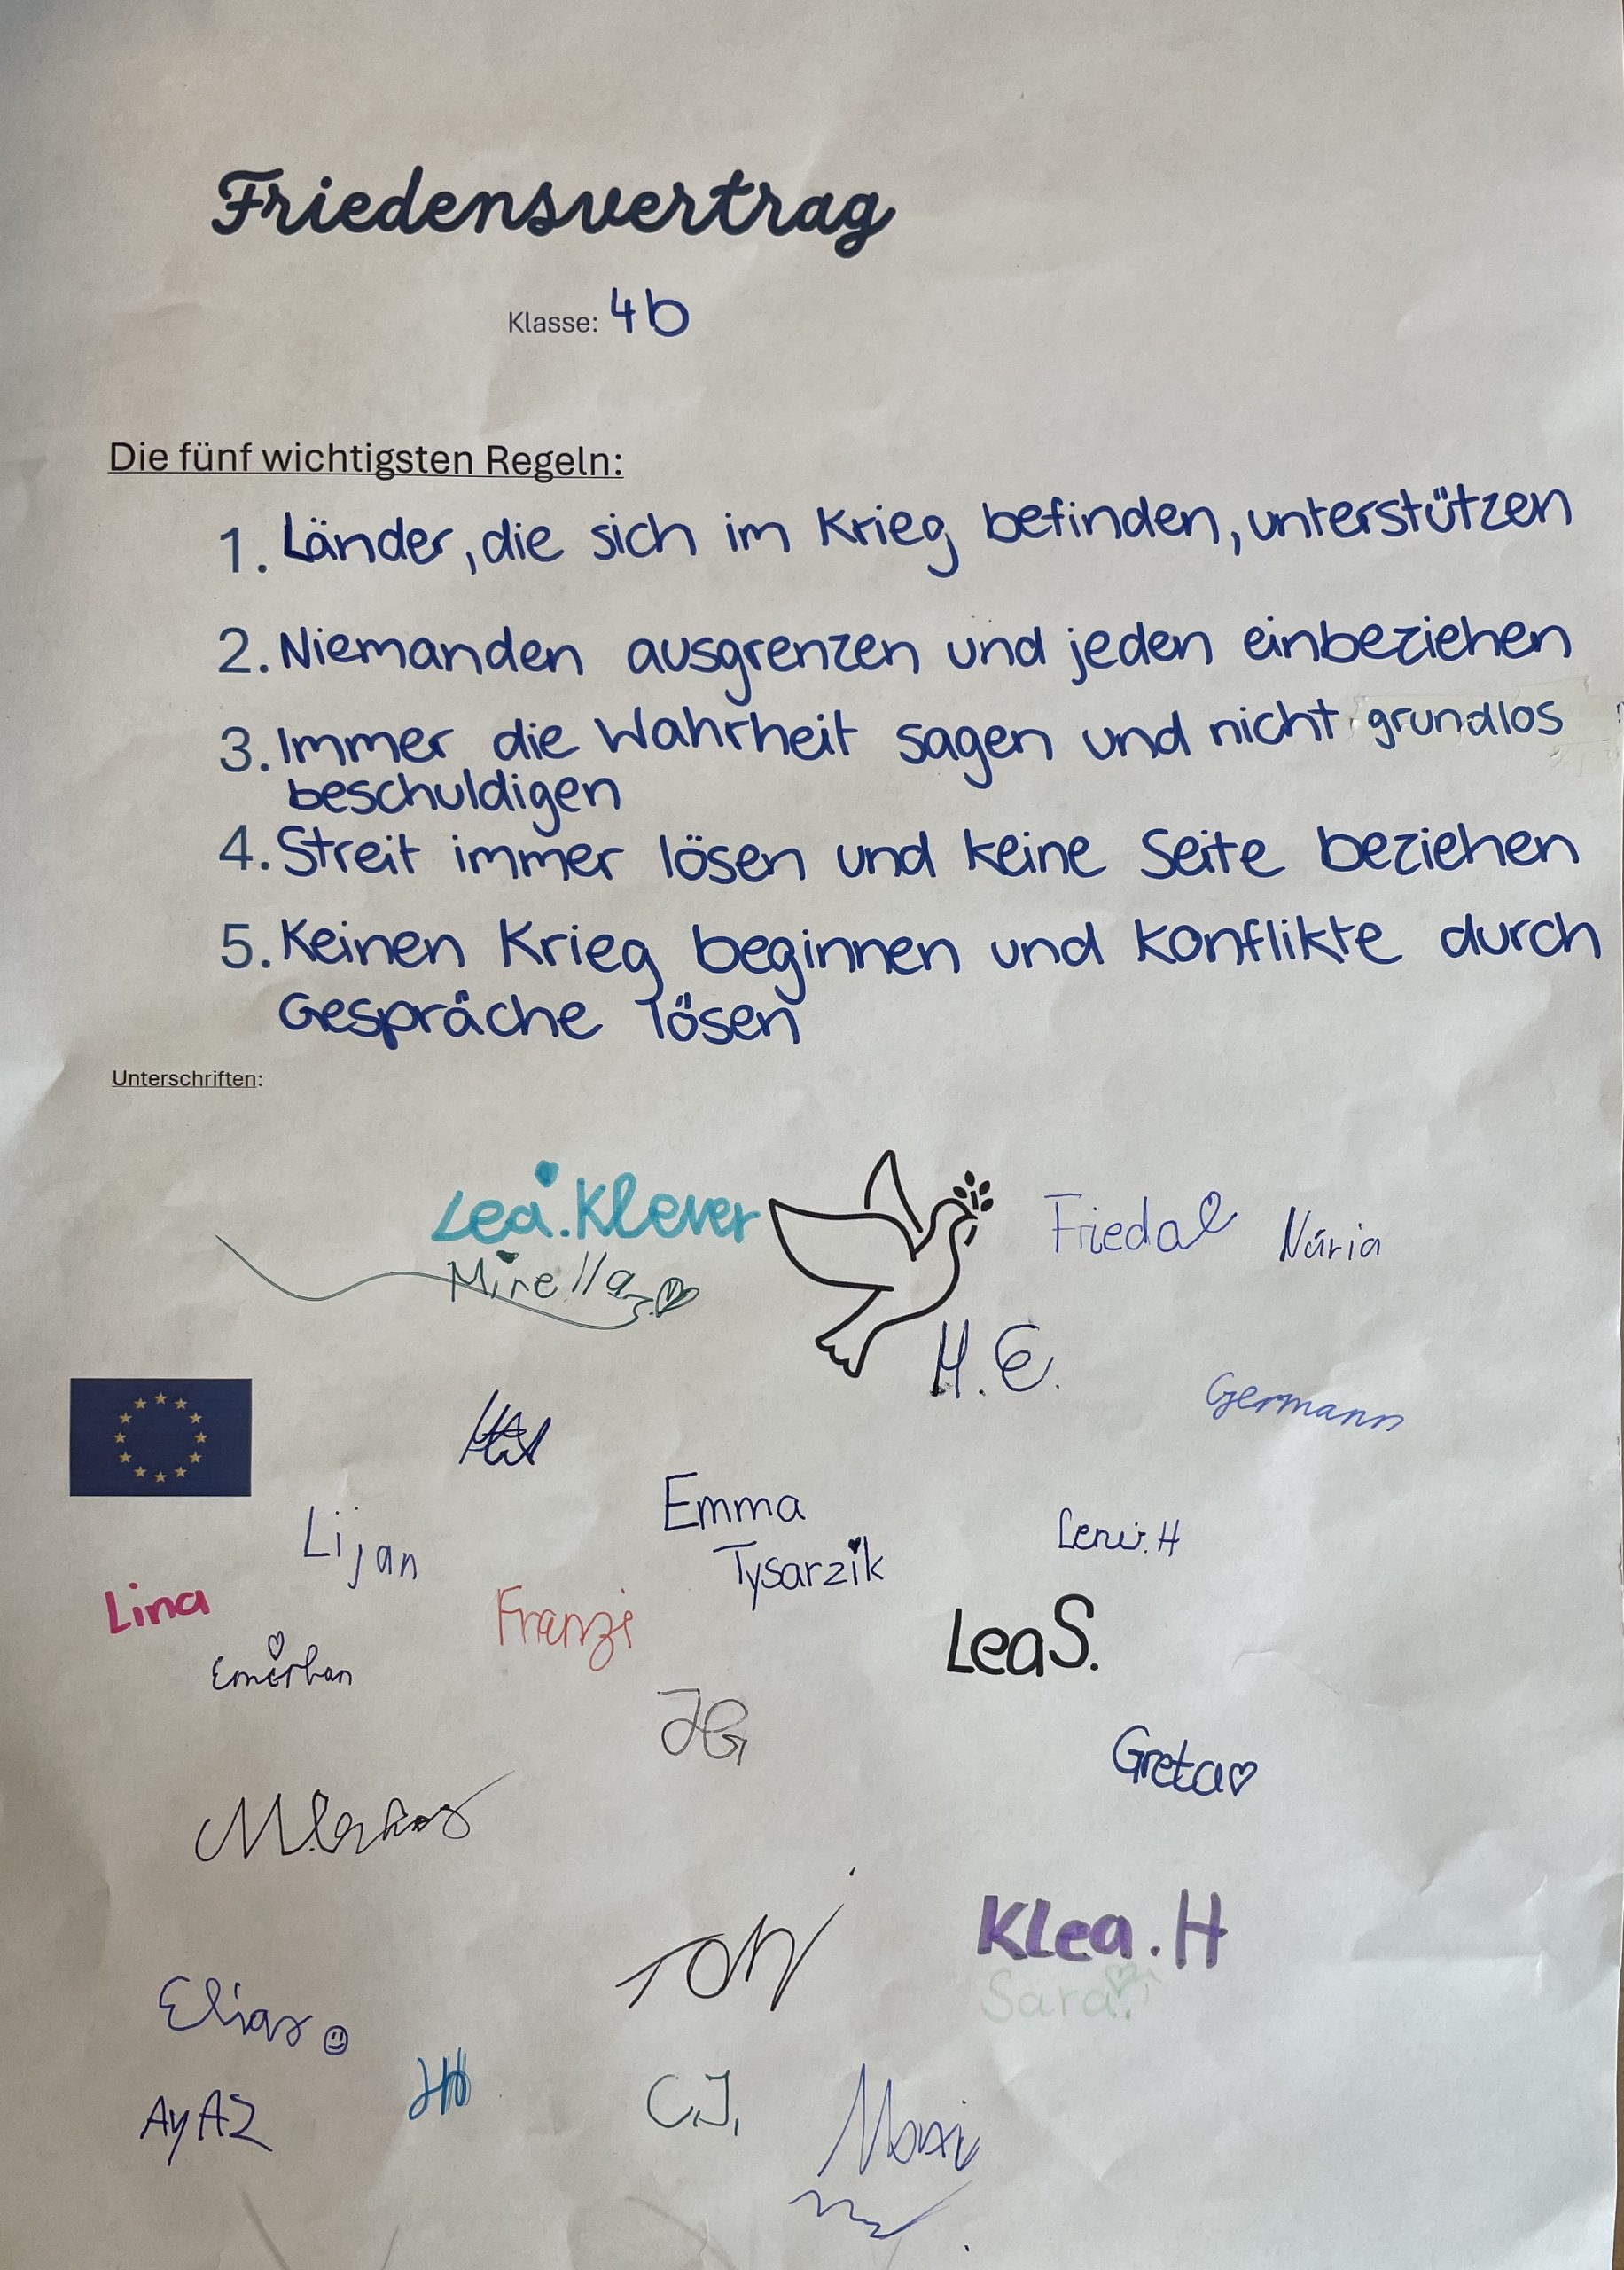 Friedensvertrag
Klasse: 4b
Die fünf wichtigsten Regeln:
1. Länder, die sich im Krieg befinden, unterstützen
2. Niemanden ausgrenzen und jeden einbeziehen
3. Immer die Wahrheit sagen und nicht grundlos
beschuldigen
4. Streit immer lösen und keine Seite beziehen
5. Keinen Krieg beginnen und Konflikte durch
Gespräche lösen
Unterschriften:
Lea.Klever
Mirella
Frieda
Núria
H.E.
Germann
Emma
Tysarzik
Leni.H
Lijan
Lina
Franzi
LeaS.
JG
Greta
KLea.H
Sara
Elias
AyAZ
C.J.
Maxi